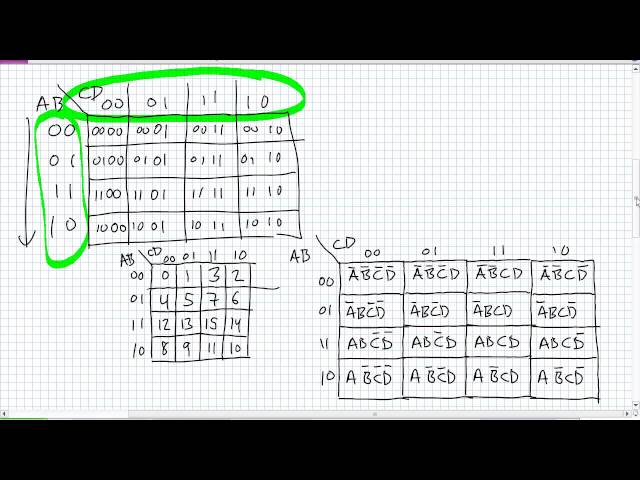 CD
AB 00 01 11 10
00 0000 00 01 00 11 00 10
01 0100 01 01 01 11 01 10
11 1100 11 01 11 11 11 10
10 1000 10 01 10 11 10 10
CD
AB 00 01 11 10
00 0 1 3 2
01 4 5 7 6
11 12 13 15 14
10 8 9 11 10
CD
AB 00 01 11 10
00 A̅B̅C̅D̅ A̅B̅C̅D A̅B̅CD A̅B̅CD̅
01 A̅BC̅D̅ A̅BC̅D A̅BCD A̅BCD̅
11 ABC̅D̅ ABC̅D ABCD ABCD̅
10 AB̅C̅D̅ AB̅C̅D AB̅CD AB̅CD̅